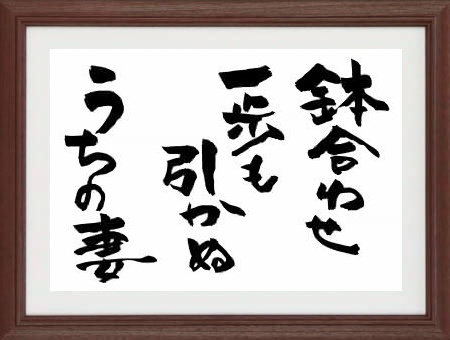 鉢合わせ
一歩も
引かぬ
うちの妻